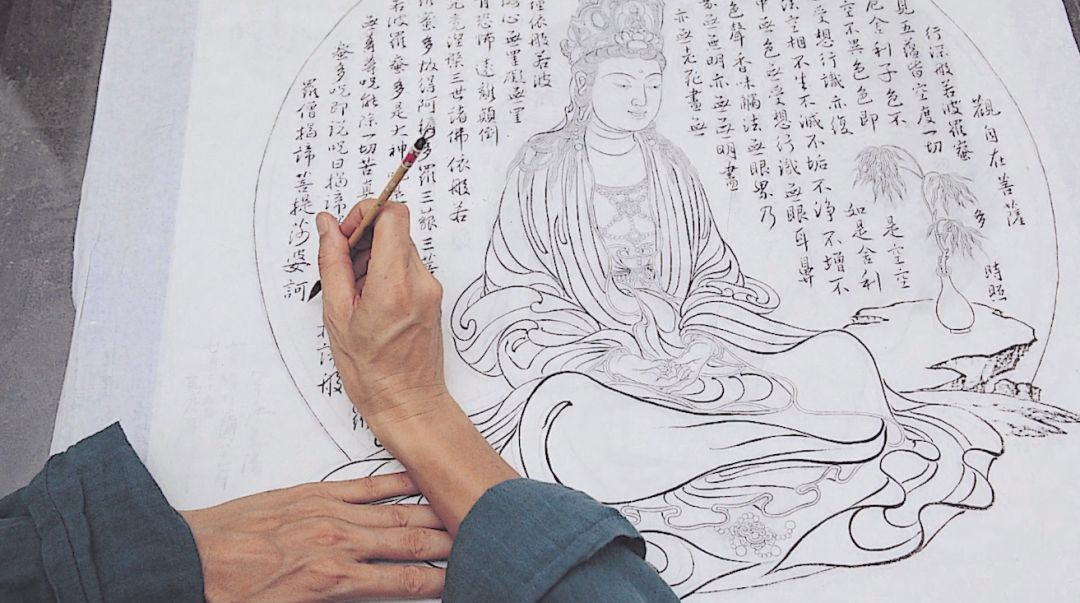 觀自在菩薩
行深般若波羅蜜
多
時照
見五蘊皆空度一切
厄舍利子色不
空不異色色即
是空空
如是舍利
受想行識亦復
法空相不生不滅不垢不净不增不
中無色無受想行識無眼耳鼻
色聲香味觸法無眼界乃
無無明亦無無明盡
亦無老死盡無
依般若波
心無罣礙無罣
有恐怖遠離顛倒
究竟涅槃三世諸佛依般若
羅蜜多故得阿多羅三藐三菩
若波羅蜜多是大神
無等等呪能除一切苦真
蜜多呪即說呪曰揭諦
羅僧揭諦菩提莎婆訶